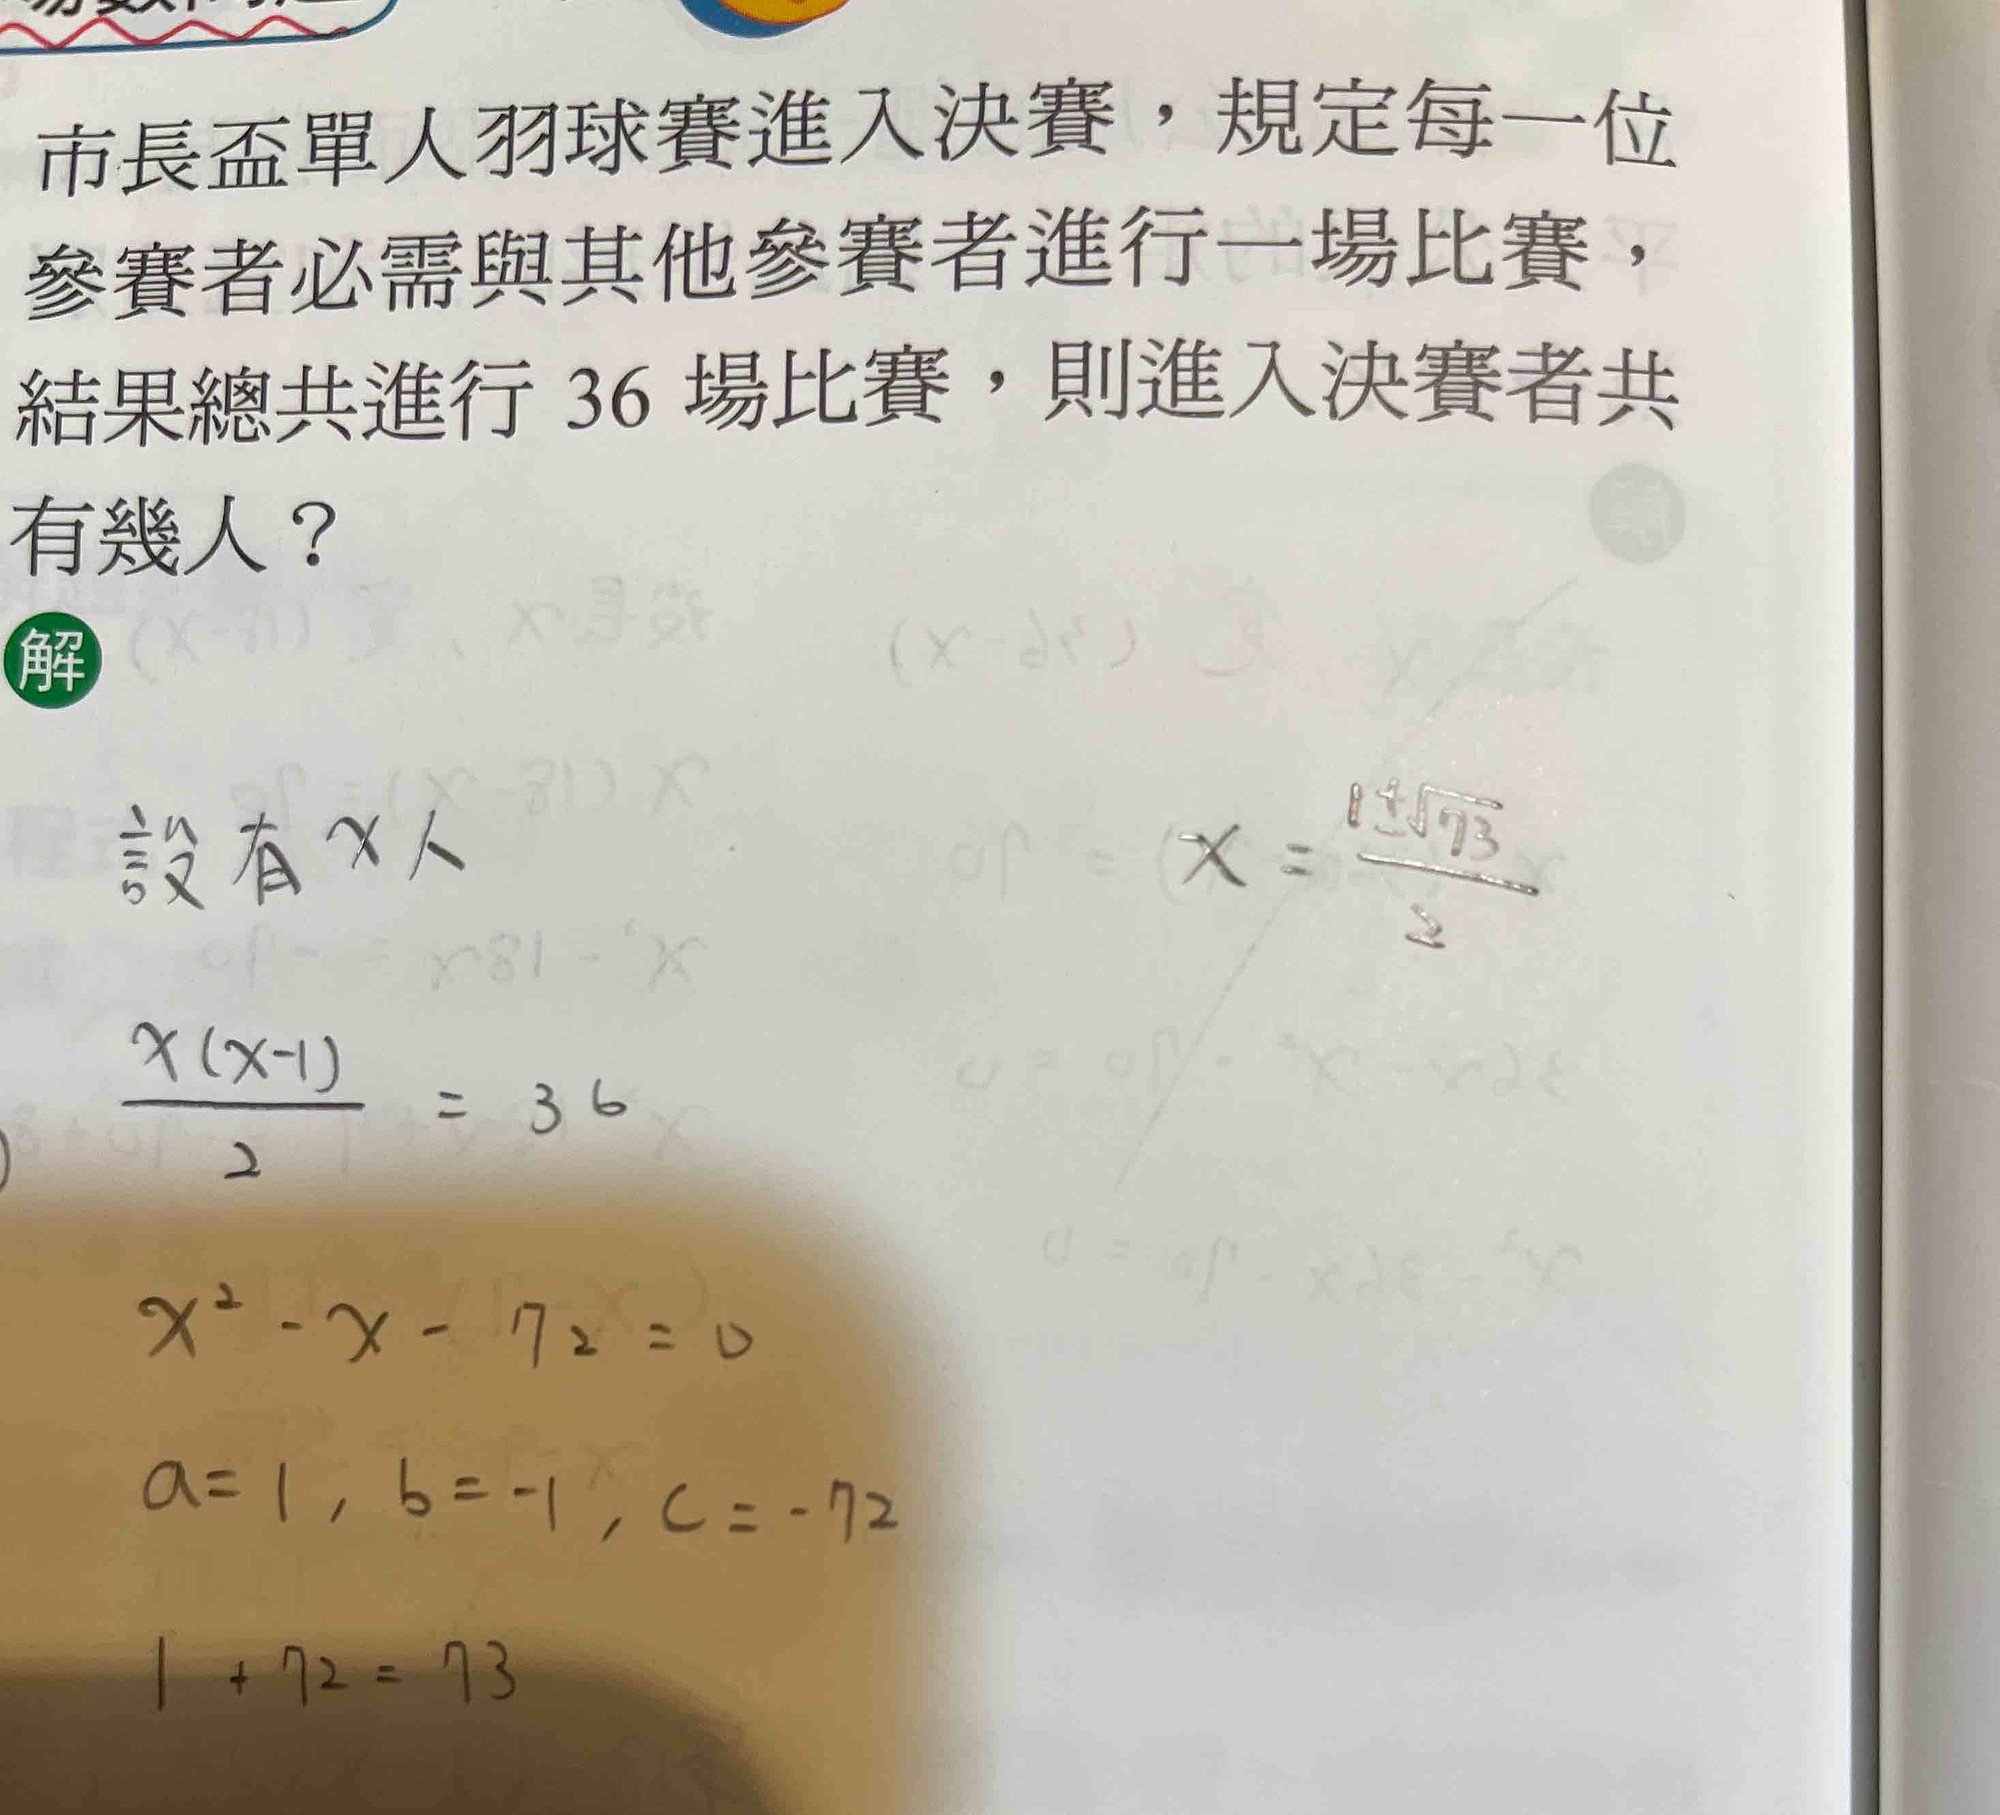 市長盃單人羽球賽進入決賽，規定每一位
參賽者必需與其他參賽者進行一場比賽，
結果總共進行 36 場比賽，則進入決賽者共
有幾人？
解
設有x人
x(x-1)/2 = 36
x² - x - 72 = 0
a=1, b=-1, c=-72
1 + 72 = 73
x = (1±√73)/2